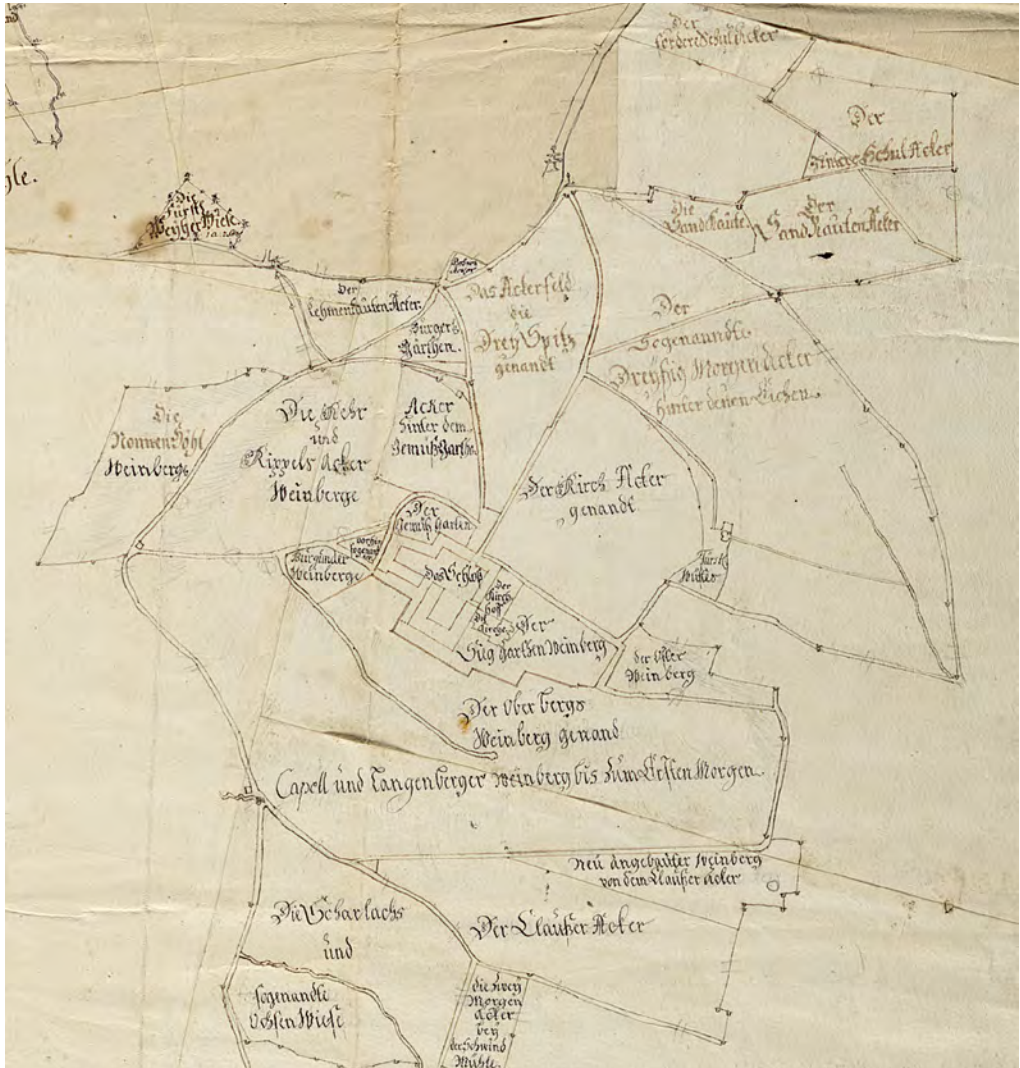 Der
fordere Schul Acker
Der
hintere Schul Acker
Die
Sand Kaute
Der
Sand Kauten Acker
Die
Fürstl.
Weyher Wiese
Der
Lehmen Kauten Acker
Burger
Gärthen
Das Ackerfeld
die
Drey Spitz
genandt
Der
Sogenanndte
Dreyßig Morgen Acker
hinter denen Eichen
Die
Nonnen Höhl
Weinberge
Die Kehr
und
Rippels Acker
Weinberge
Acker
hinter dem
Gemüß Garthe
Der Kirch Acker
genandt
Der
Gemüß Garten
Burgunder
Weinberge
Das Schloß
Der
Kirch
hoff
Der
Süg Garthen Weinberg
der Ober
Weinberg
Der Ober bergs
Weinberg genand
Capell und Langenberger Weinberg bis zum Ersten Morgen
Neu Angebauter Weinberg
von dem Clauser Acker
Die Scharlachs
und
Der Claußer Acker
sogenandte
Ochsen Wiese
die zwey
Morgen
Acker
bey
der Schwind
Mühle